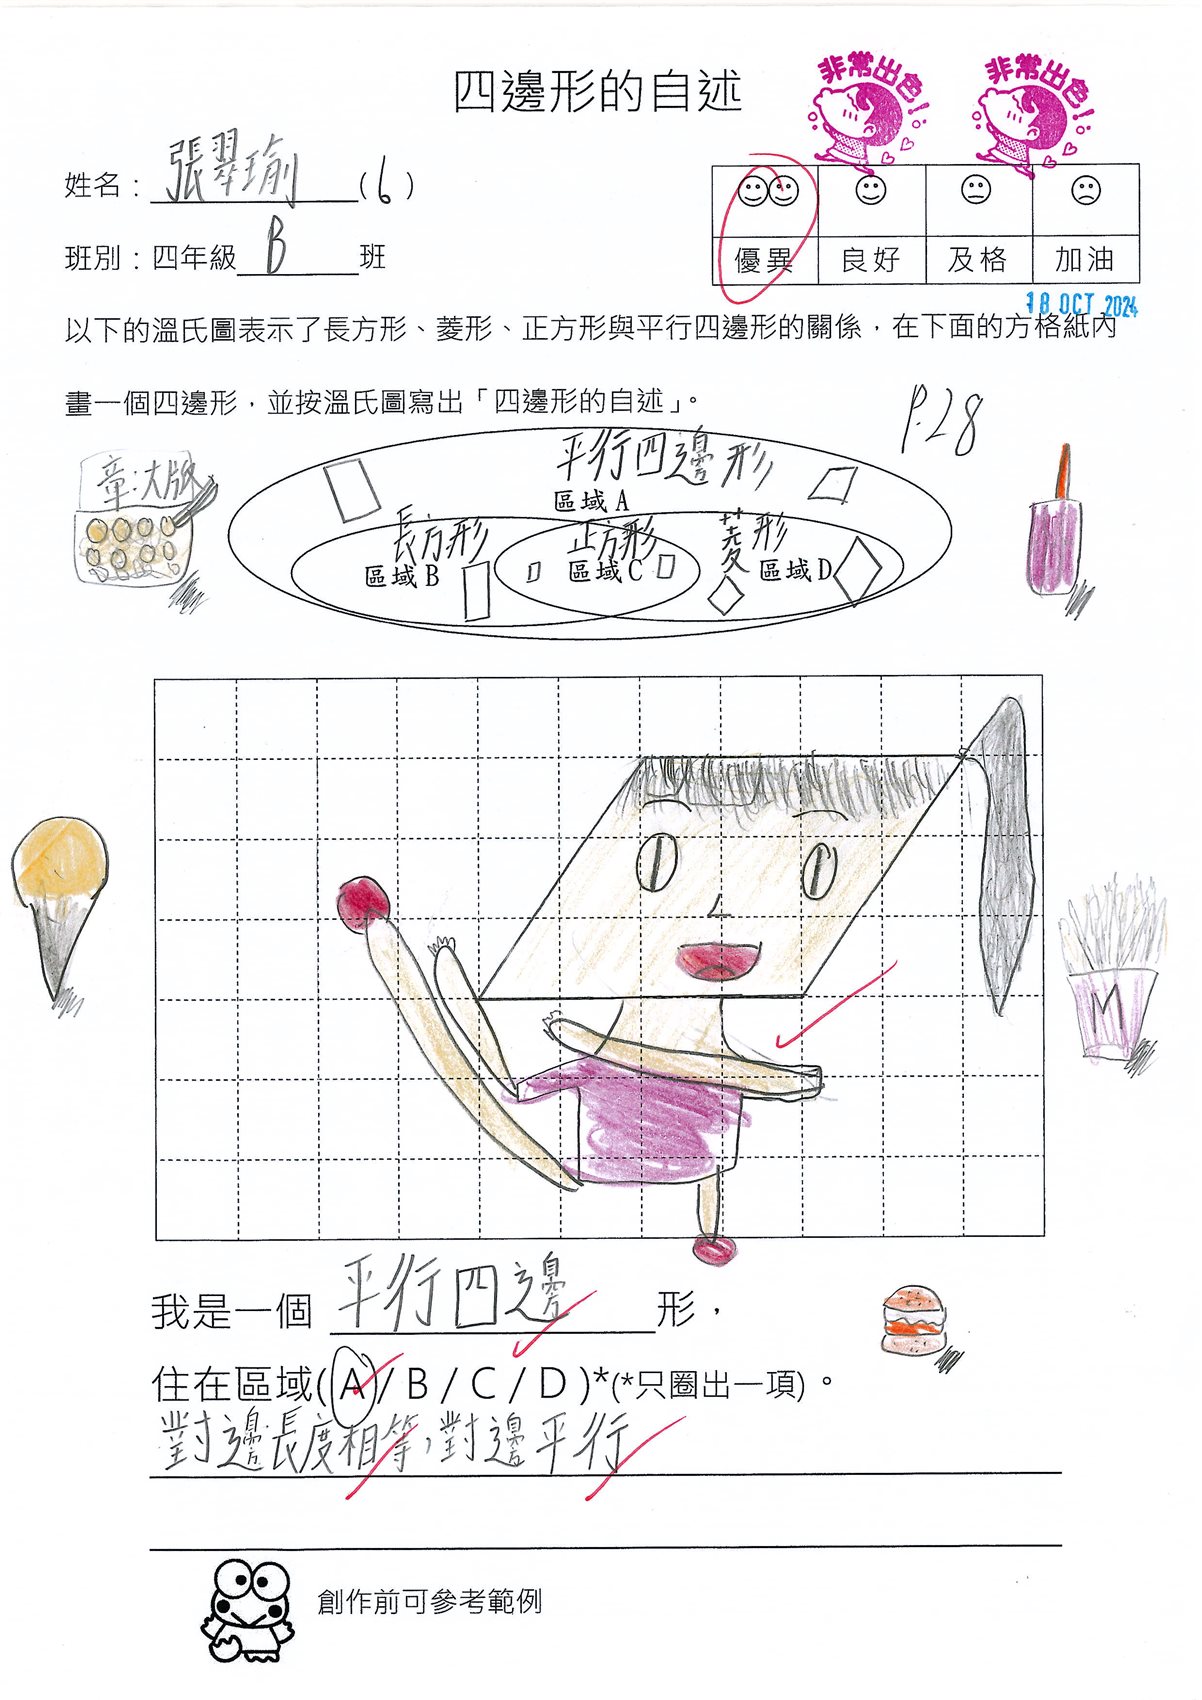 四邊形的自述
非常出色!
非常出色!
姓名：張翠瑜(6)
班別：四年級B班
優異 良好 及格 加油
18 OCT 2024
以下的溫氏圖表示了長方形、菱形、正方形與平行四邊形的關係，在下面的方格紙內
畫一個四邊形，並按溫氏圖寫出「四邊形的自述」。
P.28
平行四邊形
區域 A
長方形
區域 B
正方形
區域 C
菱形
區域 D
M
我是一個 平行四邊 形，
住在區域(A/B/C/D)*(*只圈出一項)。
對邊長度相等，對邊平行
創作前可參考範例